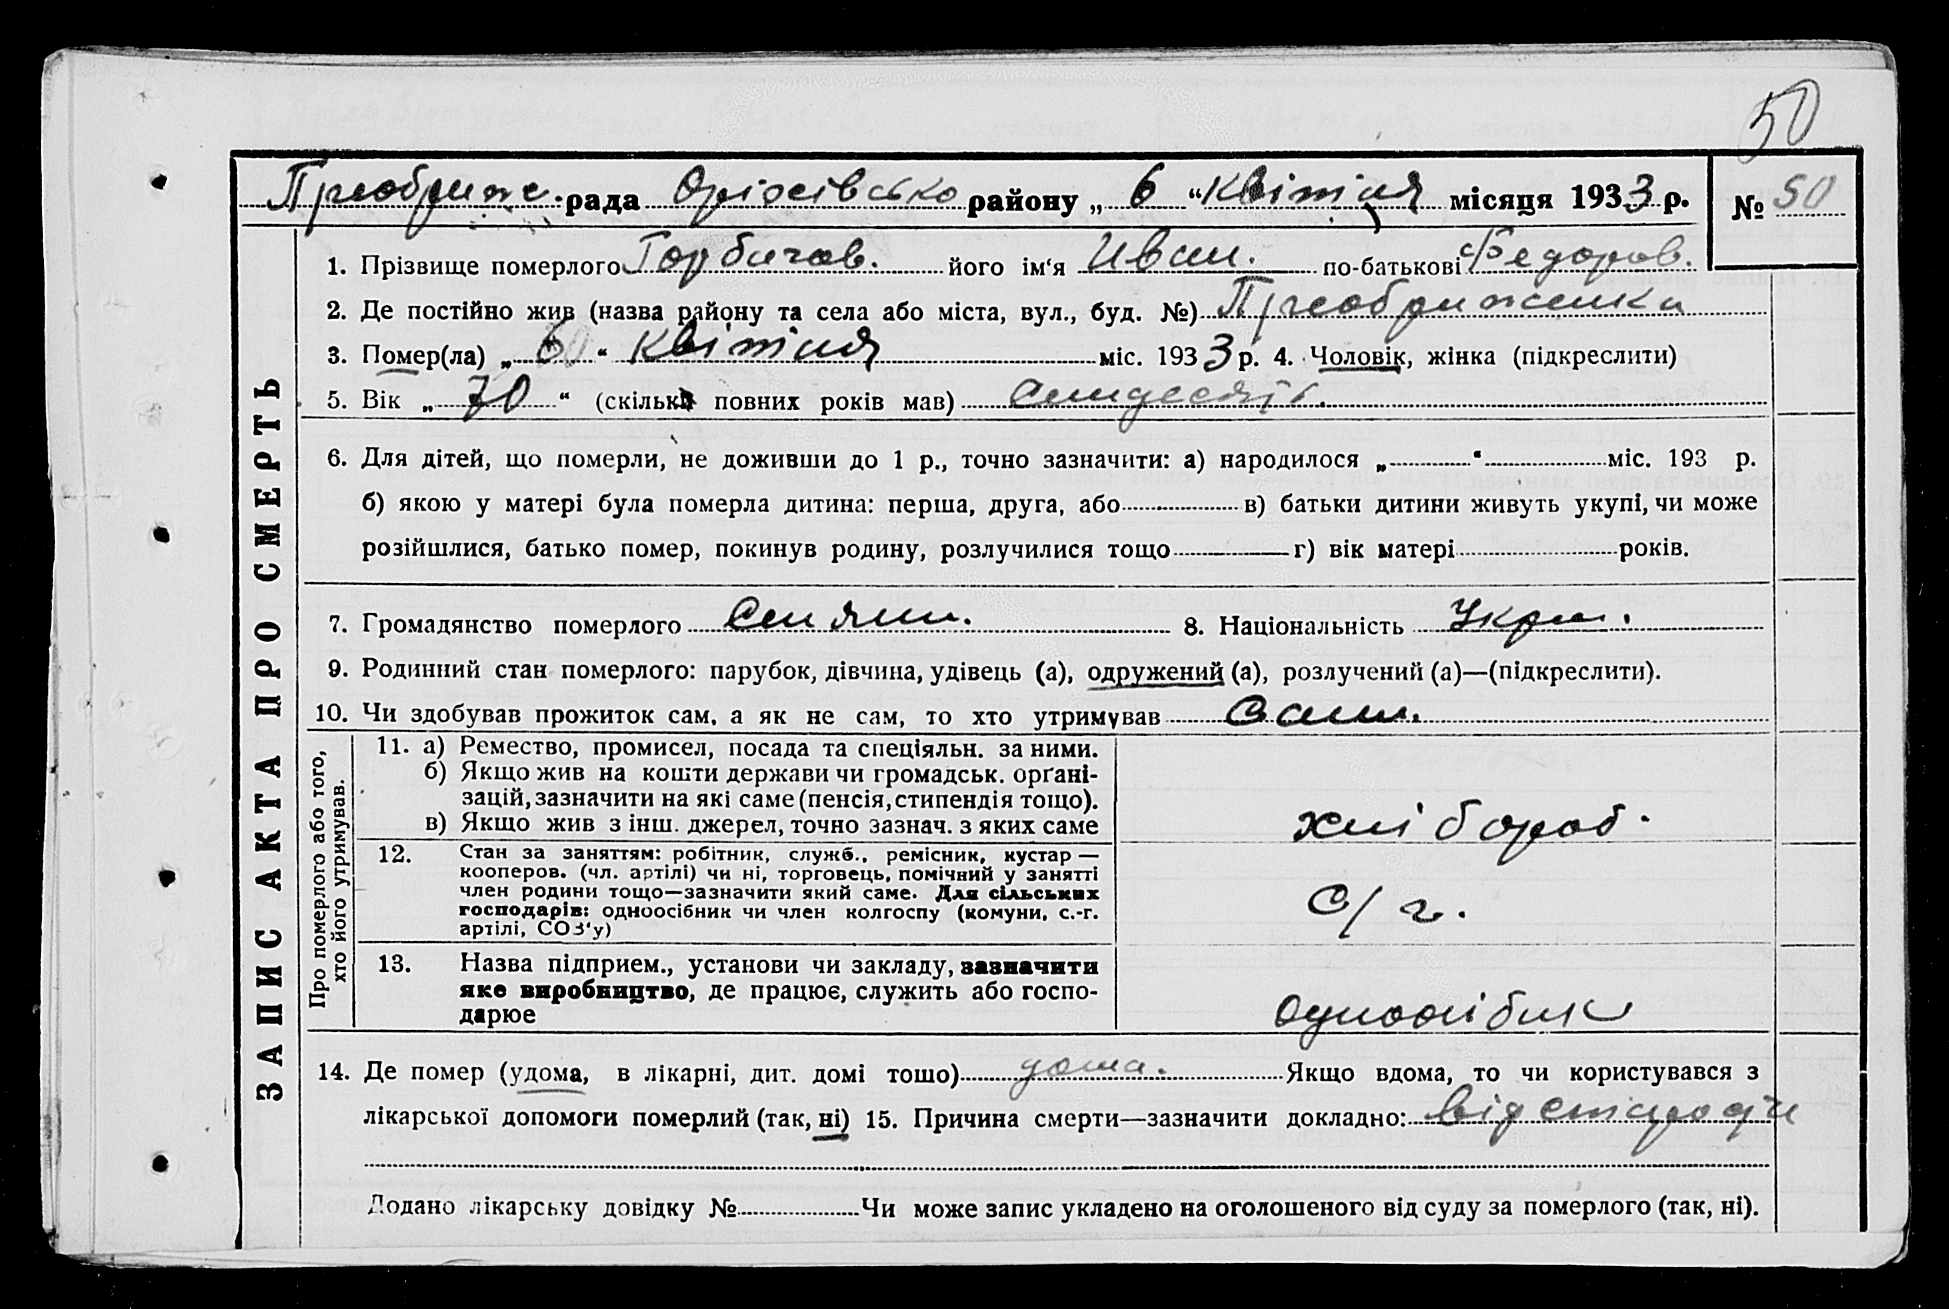 50
Преображе. рада Оріхівсько району „ 6 “ Квітня місяця 1933 р. № 50
ЗАПИС АКТА ПРО СМЕРТЬ
1. Прізвище померлого Горбачов. його ім‘я Иван. по-батькові Федоров.
2. Де постійно жив (назва району та села або міста, вул., буд. №) Преображенка
3. Помер(ла) „ 6 “ Квітня міс. 1933 р. 4. Чоловік, жінка (підкреслити)
5. Вік „ 70 “ (скільки повних років мав) Симдесять.
6. Для дітей, що померли, не доживши до 1 р., точно зазначити: а) народилося „ “ міс. 193 р.
б) якою у матері була померла дитина: перша, друга, або в) батьки дитини живуть укупі, чи може
розійшлися, батько помер, покинув родину, розлучилися тощо г) вік матері років.
7. Громадянство померлого Силянин. 8. Національність Укра.
9. Родинний стан померлого: парубок, дівчина, удівець (а), одружений (а), розлучений (а)—(підкреслити).
10. Чи здобував прожиток сам, а як не сам, то хто утримував Сам.
Про померлого або того,
хто його утримував.
11. а) Ремество, промисел, посада та спеціяльн. за ними.
б) Якщо жив на кошти держави чи громадськ. органі-
зацій, зазначити на які саме (пенсія, стипендія тощо).
в) Якщо жив з інш. джерел, точно зазнач. з яких саме
хлібороб.
12. Стан за заняттям: робітник, служб., ремісник, кустар —
кооперов. (чл. артілі) чи ні, торговець, помічний у занятті
член родини тощо—зазначити який саме. Для сільських
господарів: одноосібник чи член колгоспу (комуни, с.-г.
артілі, СОЗ‘у)
С/г.
13. Назва підприєм., установи чи закладу, зазначити
яке виробництво, де працює, служить або госпо-
дарює
одноосібник
14. Де помер (удома, в лікарні, дит. домі тощо) дома. Якщо вдома, то чи користувався з
лікарської допомоги померлий (так, ні) 15. Причина смерти—зазначити докладно: від старости
Додано лікарську довідку № Чи може запис укладено на оголошеного від суду за померлого (так, ні).